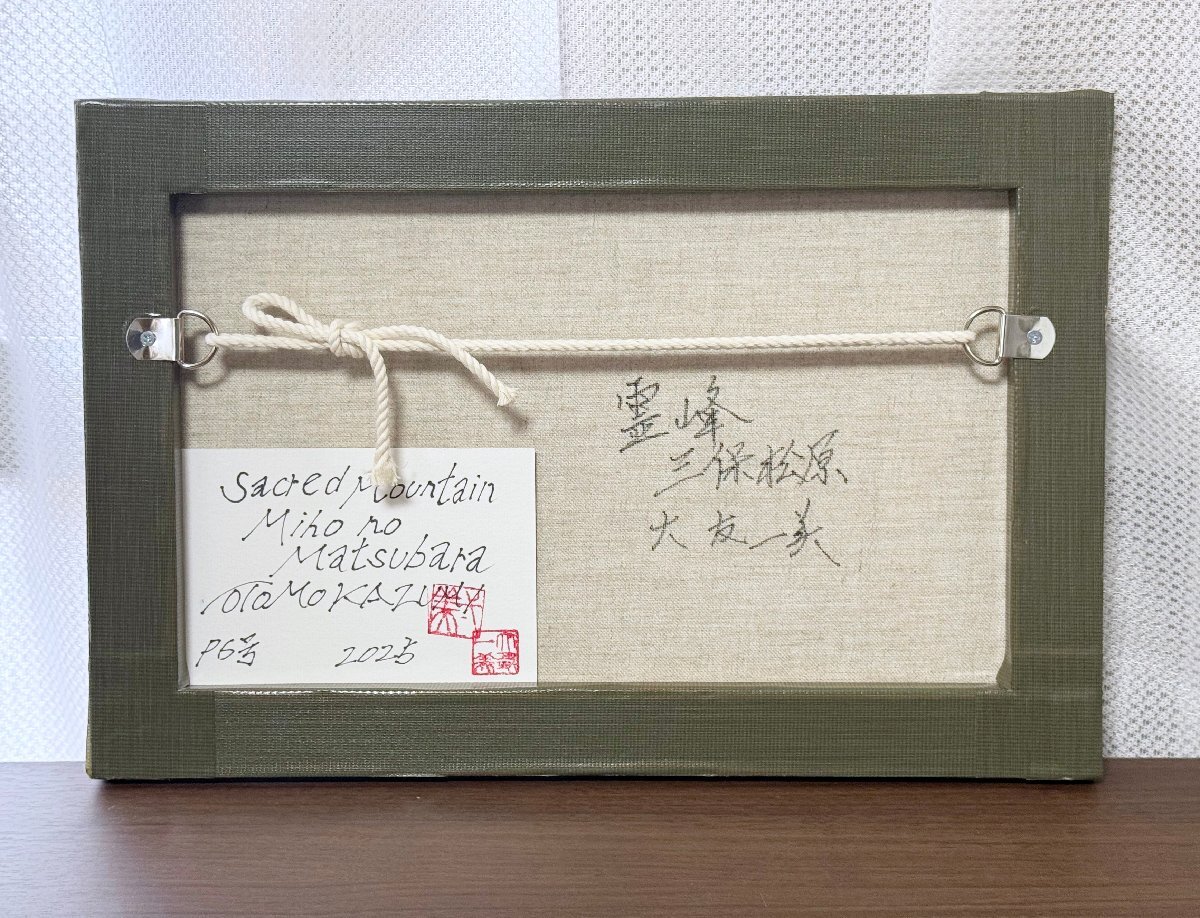 霊峰
三保松原
大友一美
Sacred Mountain
Miho no
Matsubara
OTOMO KAZUMI
P6号 2025